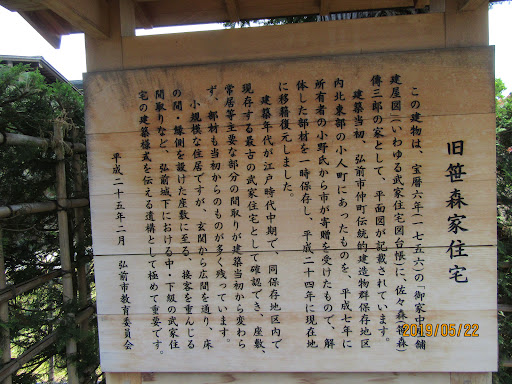 旧笹森家住宅
この建物は、宝暦六年(一七五六)の「御家中屋鋪
建屋図」(いわゆる武家住宅図台帳)に、佐々森(笹森)
傳三郎の家として、平面図が記載されています。
建築当初、弘前市仲町伝統的建造物群保存地区
内北東部の小人町にあったものを、平成七年に
所有者の小野氏から市が寄贈を受けたもので、解
体した部材を一時保存し、平成二十四年に現在地
に移築復元しました。
建築年代が江戸時代中期で、同保存地区内で
現存する最古の武家住宅として確認でき、座敷、
常居等主要な部分の間取りが建築当初から変わら
ず、部材も当初からのものが多く残っています。
小規模な住居ですが、玄関から広間を通り、床
の間・縁側を設けた座敷に至る、接客を重んじる
間取りなど、弘前城下における中・下級の武家住
宅の建築様式を伝える遺構として極めて重要です。
平成二十五年二月
弘前市教育委員会
2019/05/22